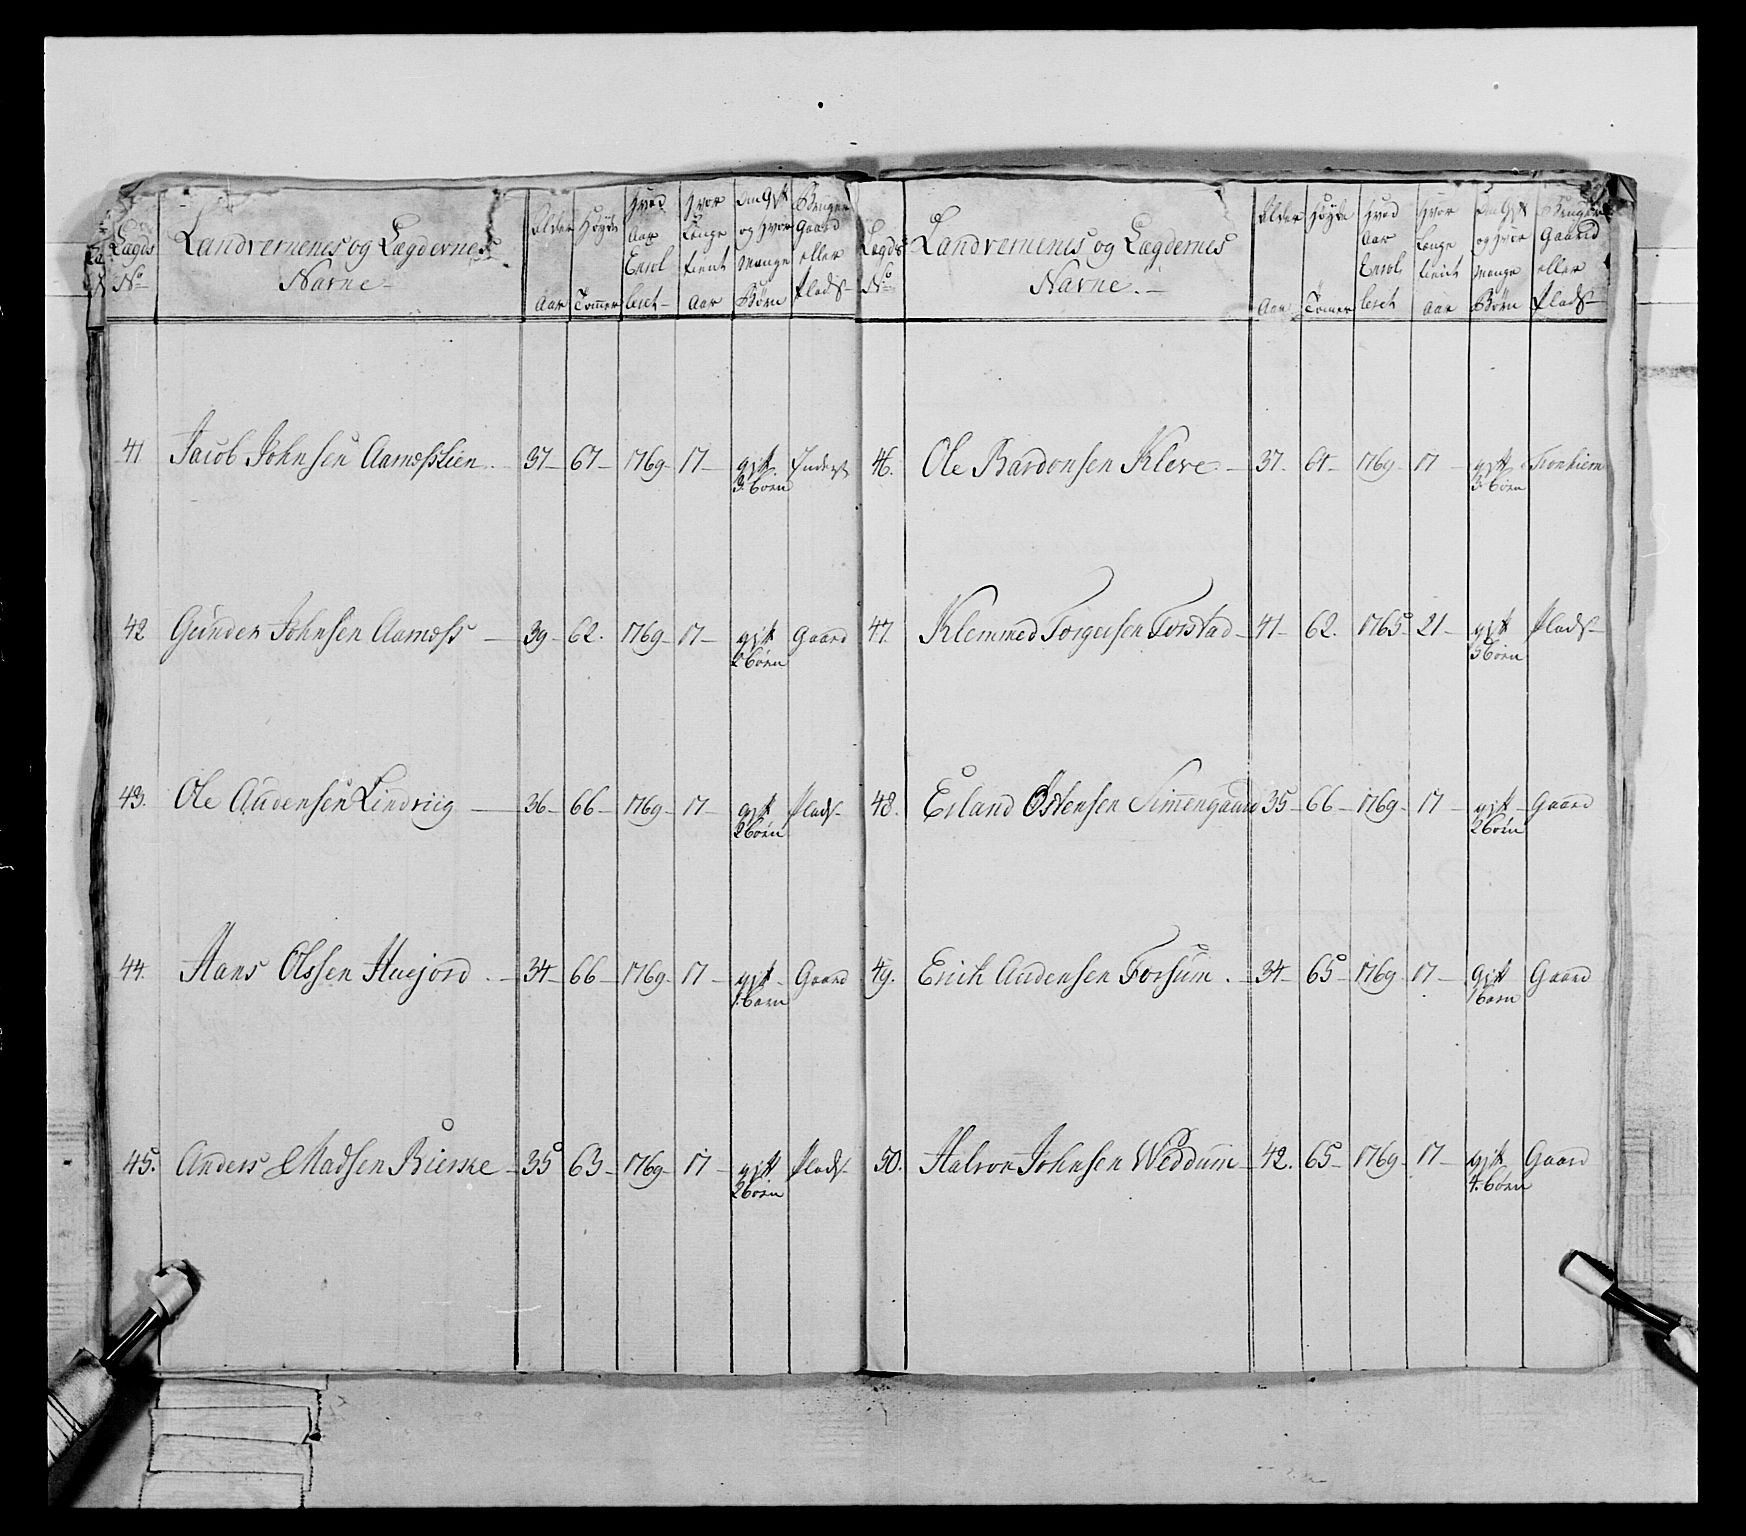 Lægds No
Landvernenes og Lægdernes Navne
Alder Aar
Høyde Tommer
Hvad Aar Enrolleret
Hvor Længe tient Aar
Om Gift og Hvor Mange Børn
Bruger Gaard eller Plads
41 Jacob Johnsen Aamodslien 37 67 1769 17 gift 3 børn Inderst
42 Gunder Johnsen Aamods 39 62 1769 17 gift 2 børn Gaard
43. Ole Audensen Lindviig 36 66 1769 17 gift 2 børn Plads
44. Hans Olssen Huejord 34 66 1769 17 gift 1 barn Gaard
45. Anders Madsen Bierske 35 63 1769 17 gift 2 børn Plads
Lægds No
Landvernenes og Lægdernes Navne
Alder Aar
Høyde Tomer
Hvad Aar Enrolleret
Hvor Længe tient Aar
Om Gift og Hvor Mange Børn
Bruger Gaard eller Plads
46. Ole Bardonsen Kleve 37 1769 17 gift 3 børn
47. Klemmed Torgersen Forstad 41 62 1765 21 gift 3 børn Plads
48. Erland Østensen Simmengaard 35 66 1769 17 gift 2 børn Gaard
49. Erich Audensen Forsum 34 65 1769 17 Gift 1 barn Gaard
50. Halvor Johnsen Weddum 42 65 1769 17 gift 4 børn Gaard